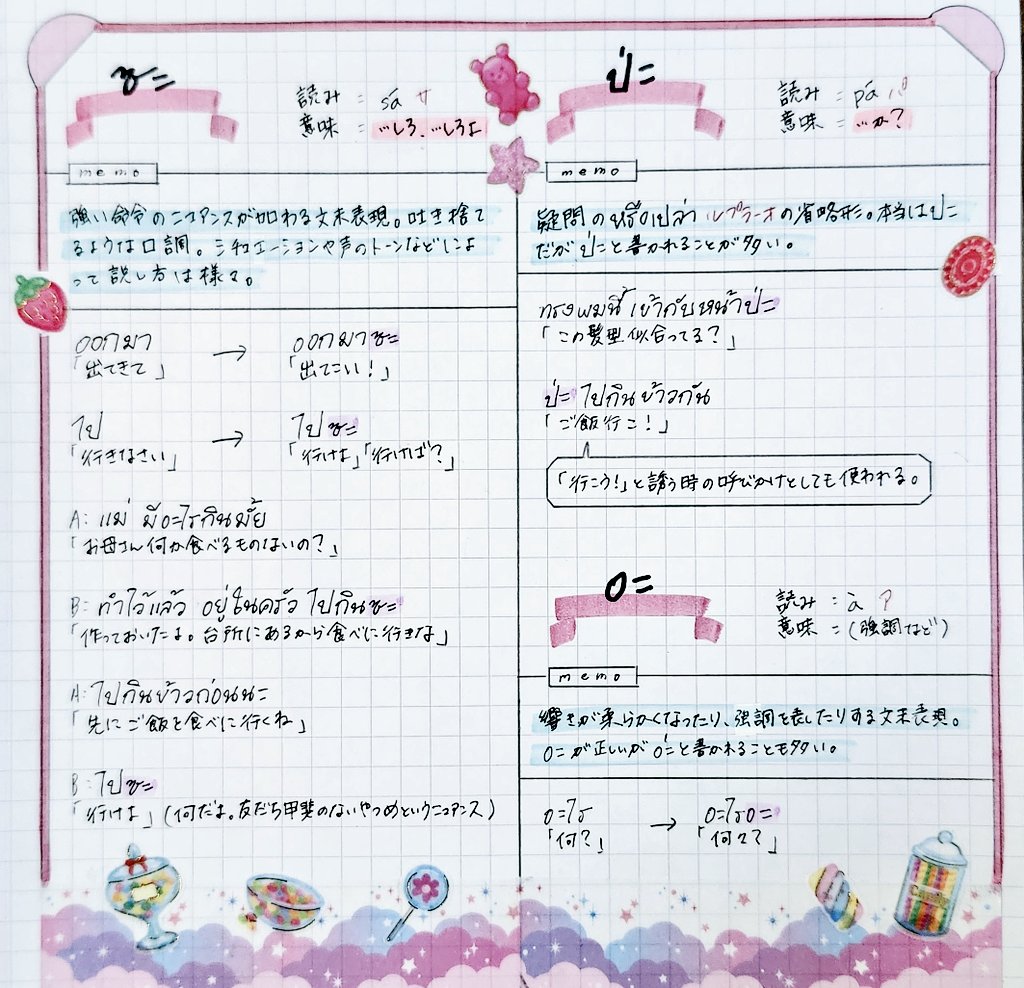 ซะ
読み : sá サ
意味 : …しろ、…しろよ
memo
強い命令のニュアンスが加わる文末表現。吐き捨て
るような口調。シチュエーションや声のトーンなどによ
って訳し方は様々。
ออกมา → ออกมาซะ
「出てきて」 「出てこい！」
ไป → ไปซะ
「行きなさい」 「行けよ」「行けば？」
A: แม่ มีอะไรกินมั้ย
「お母さん何か食べるものないの？」
B: ทำไว้แล้ว อยู่ในครัว ไปกินซะ
「作っておいたよ。台所にあるから食べに行きな」
A: ไปกินข้าวก่อนนะ
「先にご飯を食べに行くね」
B: ไปซะ
「行けよ」(何だよ。友だち甲斐のないやつめというニュアンス)
ป่ะ
読み : pá パ
意味 : …か？
memo
疑問の หรือเปล่า ルプラーオの省略形。本当は ปะ
だが ป่ะ と書かれることが多い。
ทรงผมนี้ เข้ากับหน้าป่ะ
「この髪型似合ってる？」
ป่ะ ไปกินข้าวกัน
「ご飯行こ！」
「行こう！」と誘う時の呼びかけとしても使われる。
อะ
読み : à ア
意味 : (強調など)
memo
響きが柔らかくなったり、強調を表したりする文末表現。
อะ が正しいが อ่ะ と書かれることも多い。
อะไร → อะไรอะ
「何？」 「何々？」
Candy